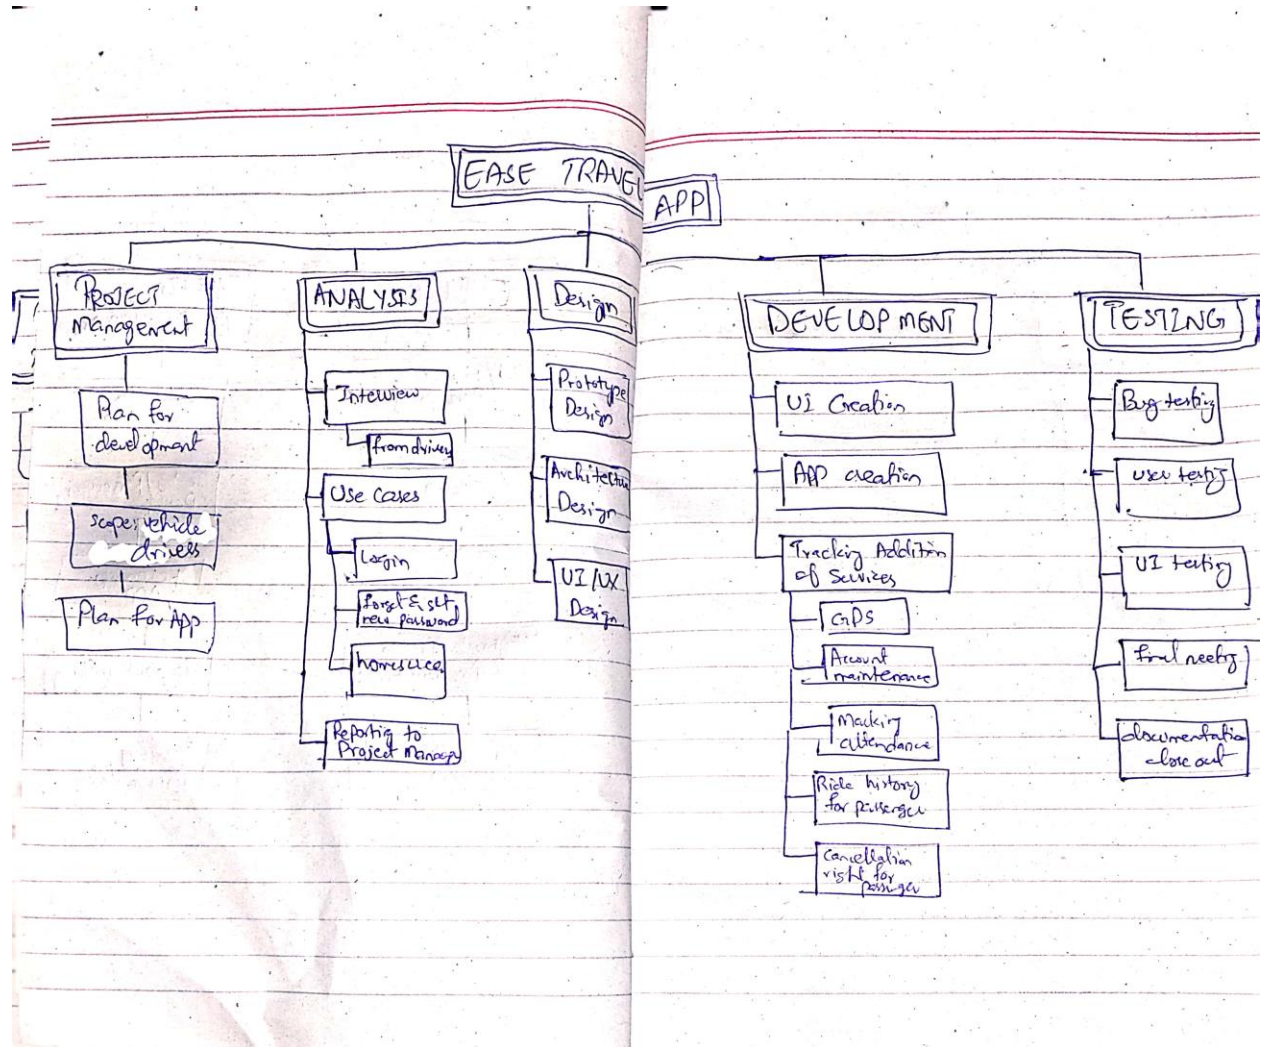 EASE TRAVEL APP
PROJECT
Management
Plan for
development
scope: vehicle
drivers
Plan for App
ANALYSIS
Interview
from drivers
Use Cases
Login
forget & set
new password
Reporting to
Project Manager
Design
Prototype
Design
Architecture
Design
UI/UX
Design
DEVELOPMENT
UI Creation
APP creation
Tracking Addition
of Services
GPS
Account
maintenance
Marking
attendance
Ride history
for passenger
Cancellation
right for
passenger
TESTING
Bug testing
user testing
UI testing
final meeting
documentation
close out